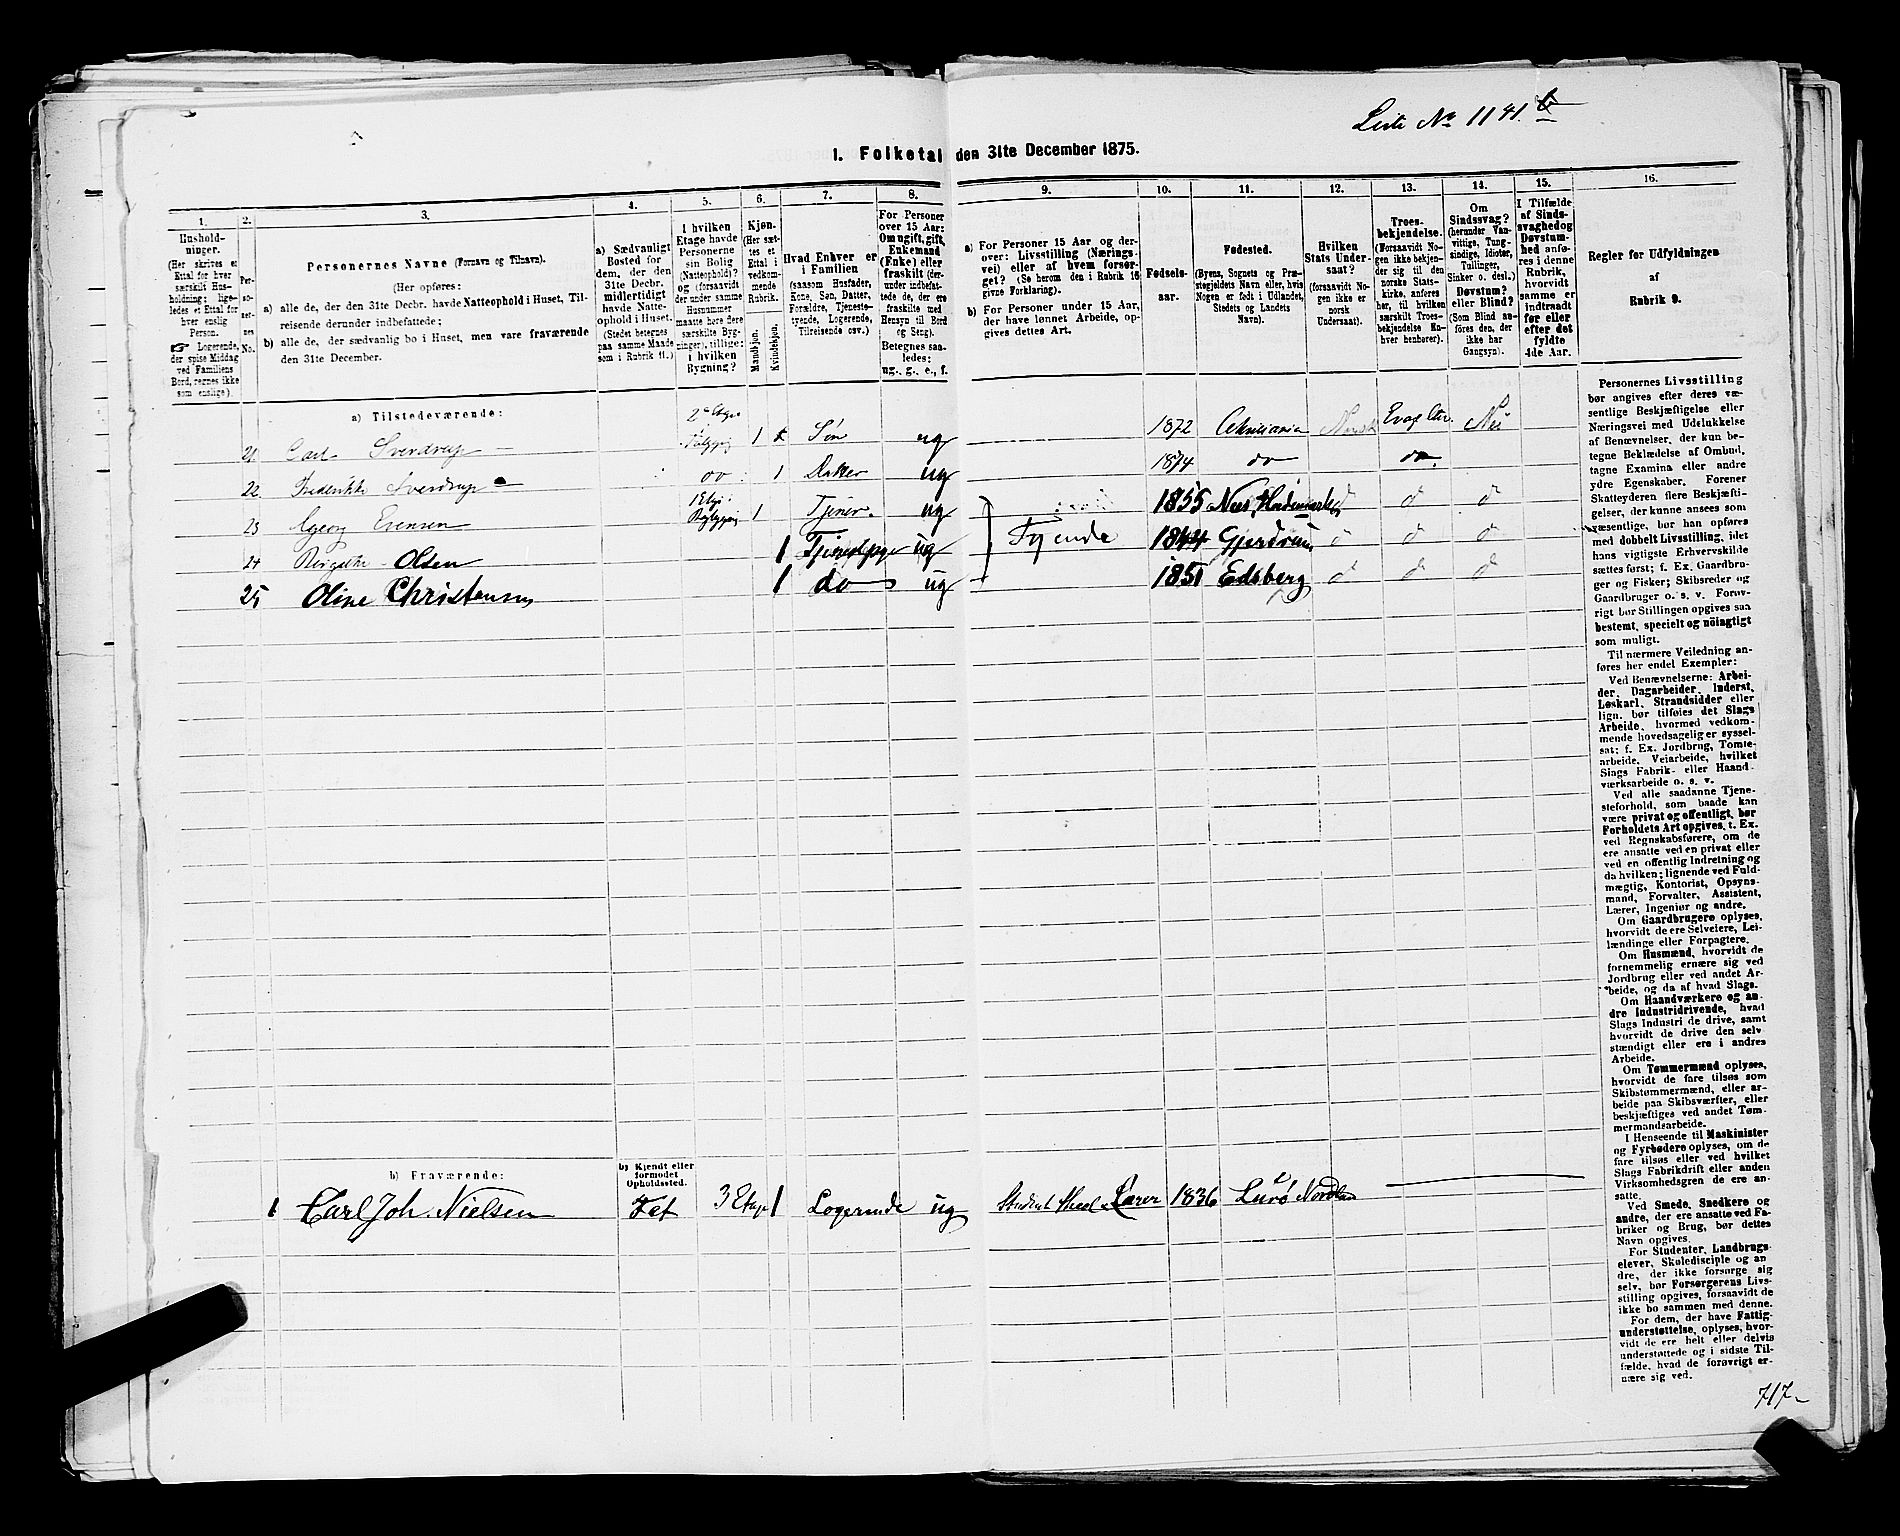 Liste No 1141 b
1. Folketal den 31te December 1875.
1. 2. 3. 4. 5. 6. 7. 8. 9. 10. 11. 12. 13. 14. 15. 16.
Hushold-
ninger.
(Her skrives et
Ettal for hver
særskilt Hus-
holdning; lige-
ledes et Ettal for
hver enslig
Person.
☞ Logerende,
der spise Middag
ved Familiens
Bord, regnes ikke
som enslige).
Per-
so-
ner-
nes
No.
Personernes Navne (Fornavn og Tilnavn).
(Her opføres:
a) alle de, der den 31te Decbr. havde Natteophold i Huset, Til-
reisende derunder indbefattede;
b) alle de, der sædvanlig bo i Huset, men vare fraværende
den 31te December.
a) Sædvanligt
Bosted for
dem, der den
31te Decbr.
midlertidigt
havde Natte-
ophold i Huset.
(Stedet betegnes
paa samme Maade
som i Rubrik 11.)
I hvilken
Etage havde
Personerne
sin Bolig
(Natteophold)?
og (forsaavidt
der under samme
Husnummer
maatte høre flere
særskilte Byg-
ninger), tillige:
i hvilken
Bygning?
Kjøn.
(Her sæt-
tes et
Ettal i
vedkom-
mende
Rubrik.
Mandkjøn.
Kvindekjøn.
Hvad Enhver er
i Familien
(saasom Husfader,
Kone, Søn, Datter,
Forældre, Tjeneste-
tyende, Logerende,
Tilreisende osv.)
For Personer
over 15 Aar:
Om ugift, gift,
Enkemand
(Enke) eller
fraskilt (der-
under indbefat-
tede de, der ere
fraskilte med
Hensyn til Bord
og Seng).
Betegnes saa-
ledes:
ug., g., e., f.
a) For Personer 15 Aar og der-
over: Livsstilling (Nærings-
vei) eller af hvem forsør-
get? (Se herom den i Rubrik 16
givne Forklaring).
b) For Personer under 15 Aar,
der have lønnet Arbeide, op-
gives dettes Art.
Fødsels-
aar.
Fødested.
(Byens, Sognets og Præ-
stegjeldets Navn eller, hvis
Nogen er født i Udlandet,
Stedets og Landets
Navn).
Hvilken
Stats Under-
saat?
(forsaavidt No-
gen ikke er
norsk
Undersaat).
Troes-
bekjendelse.
(Forsaavidt No-
gen ikke bekjen-
der sig til den
norske Stats-
kirke, anføres
her, til hvilken
særskilt Troes-
bekjendelse En-
hver henhører).
Om
Sindssvag?
(herunder Van-
vittige, Tung-
sindige, Idioter,
Tullinger,
Sinker o. desl.)
Døvstum?
eller Blind?
(Som Blind an-
føres den, der
ikke har
Gangsyn).
I Tilfælde
af Sinds-
svaghed og
Døvstum-
hed anfø-
res i denne
Rubrik,
hvorvidt
samme er
indtraadt
før eller
efter det
fyldte
4de Aar.
Regler for Udfyldningen
af
Rubrik 9.
a) Tilstedeværende:
21 Carl Sverdrup 2den Etage 1 Søn ug 1872 Christiania Norsk Evag. Lu. Nei
22 Fredrikke Sverdrup do 1 Datter ug 1874 do do
23 Georg Evensen 1 Etg. 1 Tjener ug Tyende 1855 Næs, Hedemarken d d d
24 Olsen 1 ug 1844 Gjerdrum d d d
25 Oline Christensen 1 do ug 1851 Edsberg d d d
b) Fraværende:
b) Kjendt eller
formodet
Opholdssted.
1 Carl Joh. Nielsen Fet 3 Etage 1 Logerende ug Student Lærer 1836 Lurø Nordland
Personernes Livsstilling
bør angives efter deres væ-
sentlige Beskjæftigelse eller
Næringsvei med Udelukkelse
af Benævnelser, der kun be-
tegne Beklædelse af Ombud,
tagne Examina eller andre
ydre Egenskaber. Forener
Skatteyderen flere Beskjæfti-
gelser, der kunne ansees som
væsentlige, bør han opføres
med dobbelt Livsstilling, idet
hans vigtigste Erhvervskilde
sættes først; f. Ex. Gaardbru-
ger og Fisker; Skibsreder og
Gaardbruger o. s. v. Forøv-
rigt bør Stillingen opgives saa
bestemt, specielt og nöiagtigt
som muligt.
Til nærmere Veiledning an-
føres her endel Exempler:
Ved Benævnelserne: Arbei-
der, Dagarbeider, Inderst,
Løskarl, Strandsidder eller
lign. bør tilføies det Slags
Arbeide, hvormed vedkom-
mende hovedsagelig er syssel-
sat; f. Ex. Jordbrug, Tomte-
arbeide, Veiarbeide, hvilket
Slags Fabrik- eller Haand-
værksarbeide o. s. v.
Ved alle saadanne Tjene-
steforhold, som baade kan
være privat og offentligt, bør
Forholdets Art opgives, t. Ex.
ved Regnskabsførere, om de
ere ansatte ved en privat eller
ved en offentlig Indretning og
da hvilken; lignende ved Fuld-
mægtig, Kontorist, Opsyns-
mand, Forvalter, Assistent,
Lærer, Ingeniør og andre.
Om Gaardbrugere oplyses,
hvorvidt de ere Selveiere, Lei-
lændinge eller Forpagtere.
Om Husmænd, hvorvidt de
fornemmelig ernære sig ved
Jordbrug eller ved andet Ar-
beide, og da af hvad Slags.
Om Haandværkere og an-
dre Industridrivende, hvad
Slags Industri de drive, samt
hvorvidt de drive den selv-
stændigt eller ere i andres
Arbeide.
Om Tømmermænd oplyses,
hvorvidt de fare tilsøs som
Skibstømmermænd, eller ar-
beide paa Skibsværfter, eller
beskjæftiges ved andet Tøm-
mermandsarbeide.
I Henseende til Maskinister
og Fyrbødere oplyses, om de
fare tilsøs eller ved hvilket
Slags Fabrikdrift eller anden
Virksomhedsgren de ere an-
satte.
Ved Smede, Snedkere og
andre, der ere ansatte ved Fa-
briker og Brug, bør dettes
Navn opgives.
For Studenter, Landbrugs-
elever, Skoledisciple og an-
dre, der ikke forsørge sig
selv, bør Forsørgerens Livs-
stilling opgives, forsaavidt de
ikke bo sammen med denne.
For dem, der have Fattig-
understøttelse, oplyses, hvor-
vidt de ere helt eller delvis
understøttede og i sidste Til-
fælde, hvad de forøvrigt er-
nære sig ved.
717